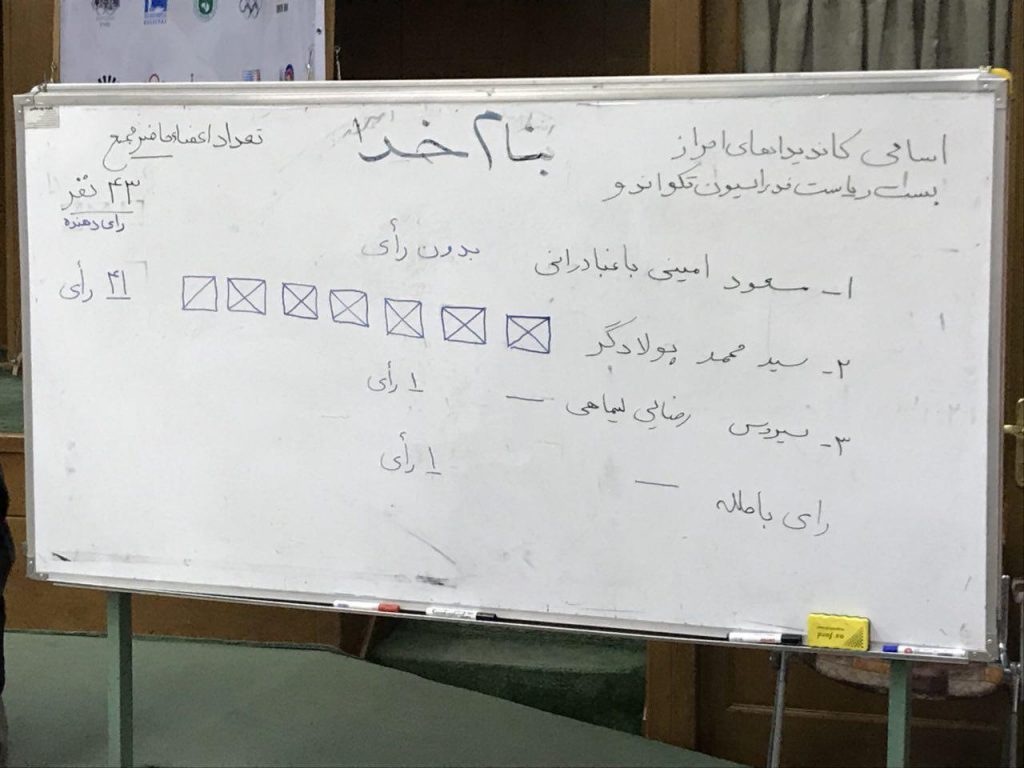 بنام خدا
اسامی کاندیداهای احراز
پست ریاست فدراسیون تکواندو
تعداد اعضاء حاضر مجمع
۴۳ نفر
رای دهنده
۱- مسعود امینی باغبادرانی بدون رأی
۲- سید محمد پولادگر ۴۱ رأی
۳- سیروس رضایی لیماهی — ۱ رأی
رای باطله — ۱ رأی